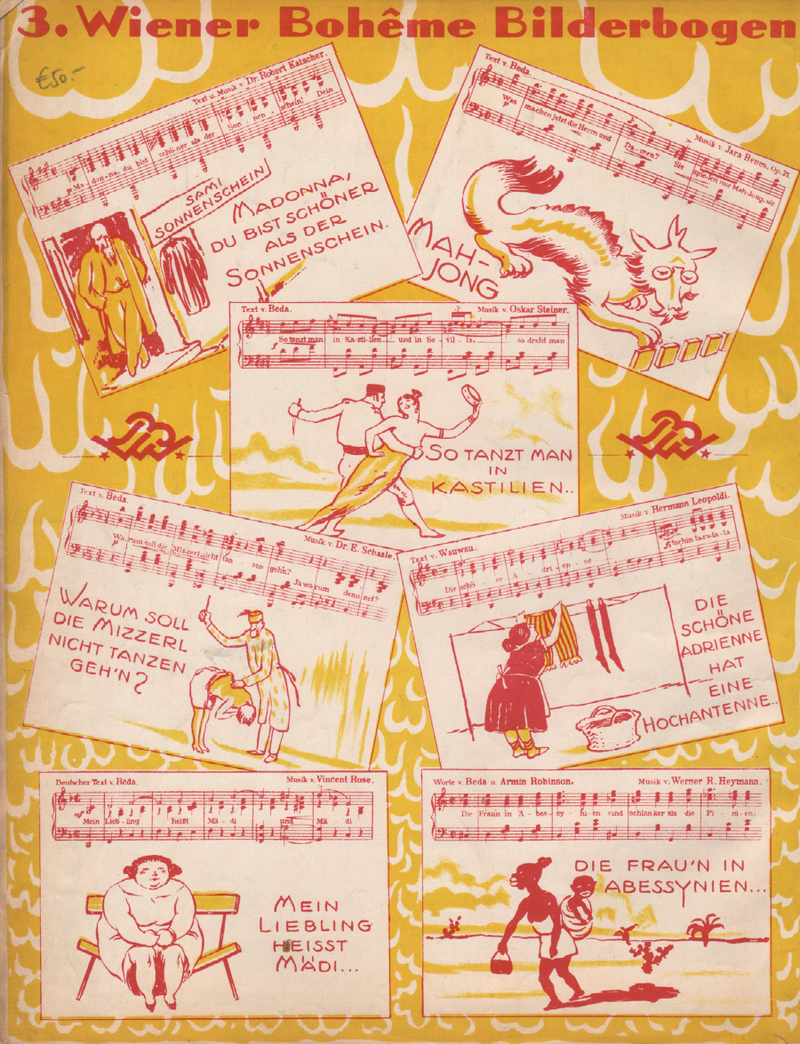 3. Wiener Bohême Bilderbogen
€50.-
Text u. Musik v. Dr. Robert Katscher.
Ma-don-na du bist schöner als der Son-nen-schein! Dein
SAMI
SONNENSCHEIN
MADONNA,
DU BIST SCHÖNER
ALS DER
SONNENSCHEIN.
Text v. Beda.
Musik v. Jara Benes, Op. 21.
Was machen jetzt die Herrn und Da-men? Sie spie-len nur Mah-Jong, sie
MAH-
JONG
Text v. Beda.
Musik v. Oskar Steiner.
So tanzt man in Ka-sti-lien und in Se-vil-la, so dreht man
SO TANZT MAN
IN
KASTILIEN..
Text v. Beda.
Musik v. Dr. E. Schaale.
Wa-rum soll die Mizzerl nicht tan-zen gehn? Ja warum denn net?
WARUM SOLL
DIE MIZZERL
NICHT TANZEN
GEH'N?
Text v. Wauwau.
Musik v. Hermann Leopoldi.
Die schö-ne A-dri-en-ne Atschin ta-ra-ta-ta
DIE
SCHÖNE
ADRIENNE
HAT
EINE
HOCHANTENNE..
Deutscher Text v. Beda.
Musik v. Vincent Rose.
Mein Lieb-ling heißt Mä-di und Mä-di
MEIN
LIEBLING
HEISST
MÄDI...
Worte v. Beda u. Armin Robinson.
Musik v. Werner R. Heymann.
Die Fraun in A-bes-sy-ni-en sind schlanker als die Pi-ni-en.
DIE FRAU'N IN
ABESSYNIEN...